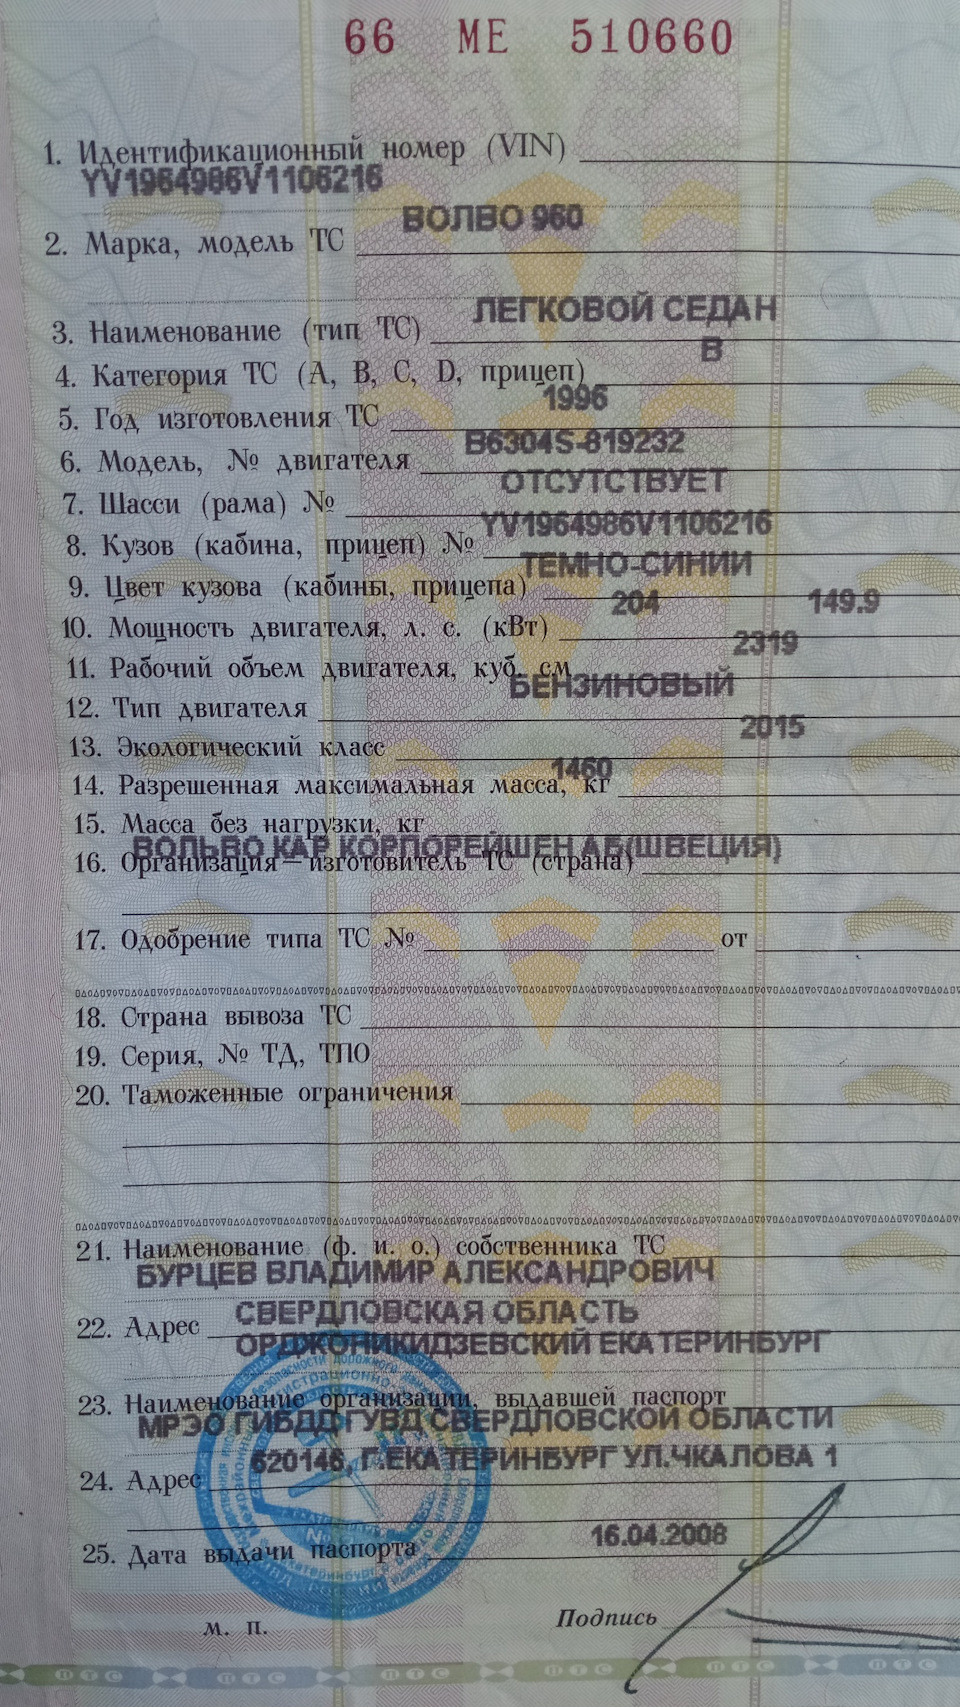 66 МЕ 510660
1. Идентификационный номер (VIN)
YV1964986V1106216
ВОЛВО 960
2. Марка, модель ТС
ЛЕГКОВОЙ СЕДАН
3. Наименование (тип ТС)
В
4. Категория ТС (А, В, С, D, прицеп)
1996
5. Год изготовления ТС
B6304S-819232
6. Модель, № двигателя
ОТСУТСТВУЕТ
7. Шасси (рама) №
YV1964986V1106216
8. Кузов (кабина, прицеп) №
ТЕМНО-СИНИЙ
9. Цвет кузова (кабины, прицепа)
204 149.9
10. Мощность двигателя, л. с. (кВт)
2319
11. Рабочий объем двигателя, куб. см
БЕНЗИНОВЫЙ
12. Тип двигателя
2015
13. Экологический класс
1460
14. Разрешенная максимальная масса, кг
15. Масса без нагрузки, кг
ВОЛЬВО КАР КОРПОРЕЙШЕН АБ(ШВЕЦИЯ)
16. Организация – изготовитель ТС (страна)
17. Одобрение типа ТС № от
18. Страна вывоза ТС
19. Серия, № ТД, ТПО
20. Таможенные ограничения
21. Наименование (ф. и. о.) собственника ТС
БУРЦЕВ ВЛАДИМИР АЛЕКСАНДРОВИЧ
СВЕРДЛОВСКАЯ ОБЛАСТЬ
22. Адрес
ОРДЖОНИКИДЗЕВСКИЙ ЕКАТЕРИНБУРГ
23. Наименование организации, выдавшей паспорт
МРЭО ГИБДД ГУВД СВЕРДЛОВСКОЙ ОБЛАСТИ
620146, Г.ЕКАТЕРИНБУРГ УЛ.ЧКАЛОВА 1
24. Адрес
16.04.2008
25. Дата выдачи паспорта
м. п. Подпись
ПТС ПТС ПТС ПТС ПТС